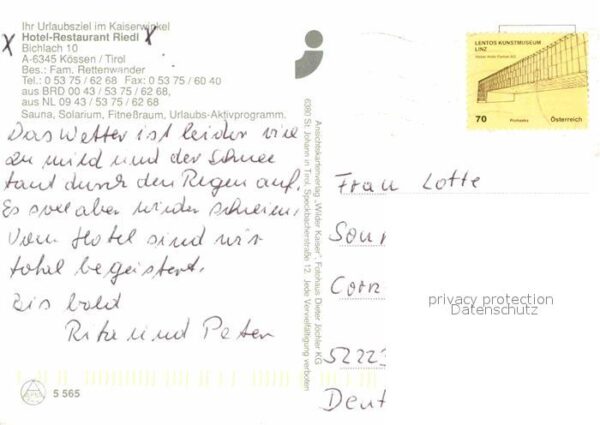 Ihr Urlaubsziel im Kaiserwinkel
X Hotel-Restaurant Riedl X
Bichlach 10
A-6345 Kössen / Tirol
Bes.: Fam. Rettenwander
Tel.: 0 53 75 / 62 68 Fax: 0 53 75 / 60 40
aus BRD 00 43 / 53 75 / 62 68,
aus NL 09 43 / 53 75 / 62 68
Sauna, Solarium, Fitneßraum, Urlaubs-Aktivprogramm.
Das Wetter ist leider viel
zu mild und der Schnee
taut durch den Regen auf.
Es soll aber wieder schneien.
Vom Hotel sind wir
total begeistert.
Bis bald
Rita und Peter
5 565
Ansichtskartenverlag „Wilder Kaiser“, Fotohaus Dieter Jöchler KG
6380 St. Johann in Tirol, Speckbacherstraße 12. Jede Vervielfältigung verboten
LENTOS KUNSTMUSEUM
LINZ
70 Österreich
Frau Lotte
Corn
52223
Deut
privacy protection
Datenschutz